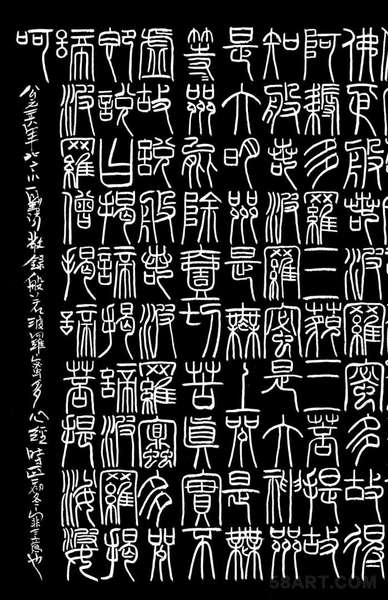 佛依般若波羅蜜多故得
阿耨多羅三藐三菩提故
知般若波羅蜜是大神咒
是大明咒是無上咒是無
等々咒能除壹切苦真實不
虛故說般若波羅蜜多咒
即說曰揭諦揭諦波羅揭
諦波羅僧揭諦菩提娑婆
呵
公元年錄般若波羅蜜多心經時正初冬也
58ART.COM